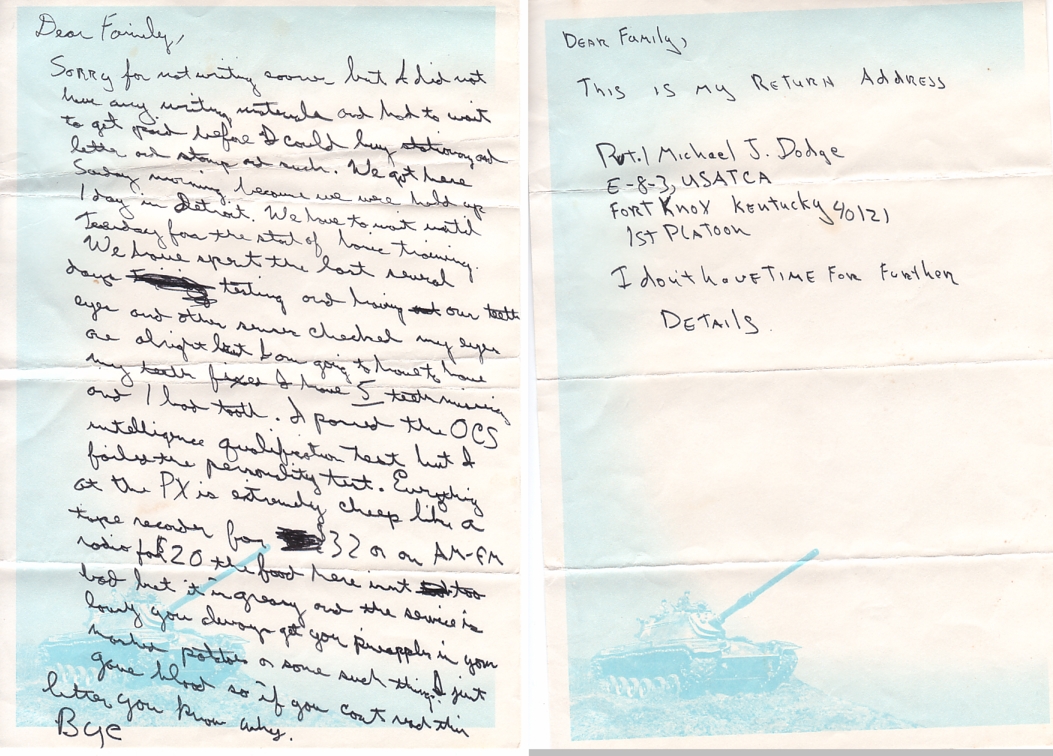 Dear Family,
Sorry for not writing sooner but I did not
have any writing materials and had to wait
to get paid before I could buy stationary and
letter and stamp and such. We got here
Sunday morning because we were held up
1 day in Detroit. We have to wait until
Tuesday for the start of basic training.
We have spent the last several
days testing and having our teeth
eyes and other senses checked my eyes
are alright but I am going to have to have
my teeth fixed I have 5 teeth missing
and 1 bad tooth. I passed the OCS
intelligence qualification test but I
failed the personality test. Everything
at the PX is extremely cheep like a
tape recorder for 32 or an AM-FM
radio for $20 the food here isnt too
bad but it is greasy and the service is
lousy you always get you pineapples in your
mashed potatoes or some such thing. I just
gave blood so if you cant read this
letter you know why.
Bye
Dear Family,
This is my Return Address
Pvt.1 Michael J. Dodge
E-8-3, USATCA
Fort Knox Kentucky 40121
1st Platoon
I don't have Time For Further
Details.